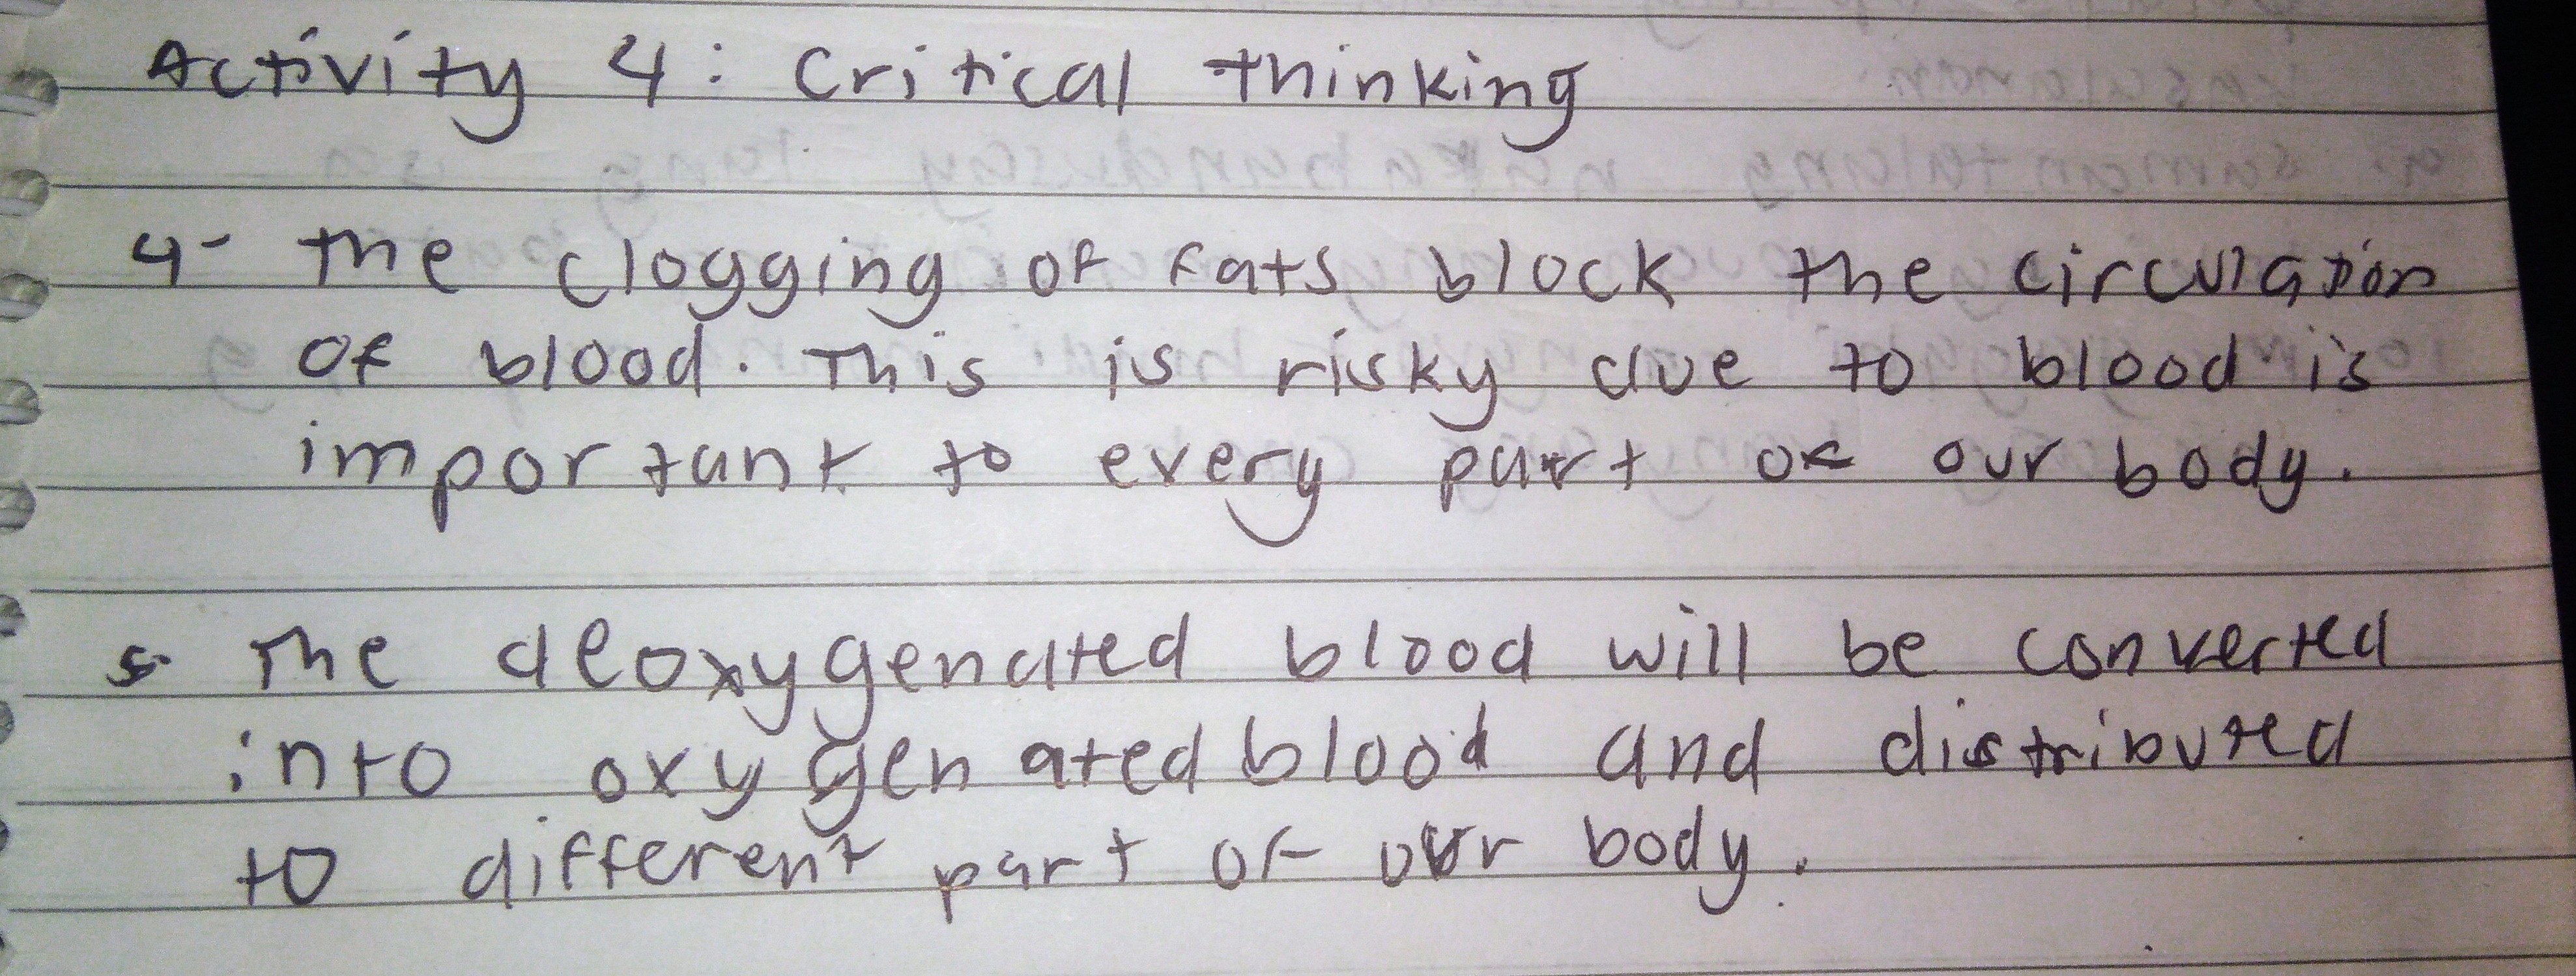 Activity 4: Critical thinking
4- The clogging of fats block the circulation
of blood. This is risky due to blood is
important to every part of our body.
5- The deoxygenated blood will be converted
into oxygenated blood and distributed
to different part of our body.